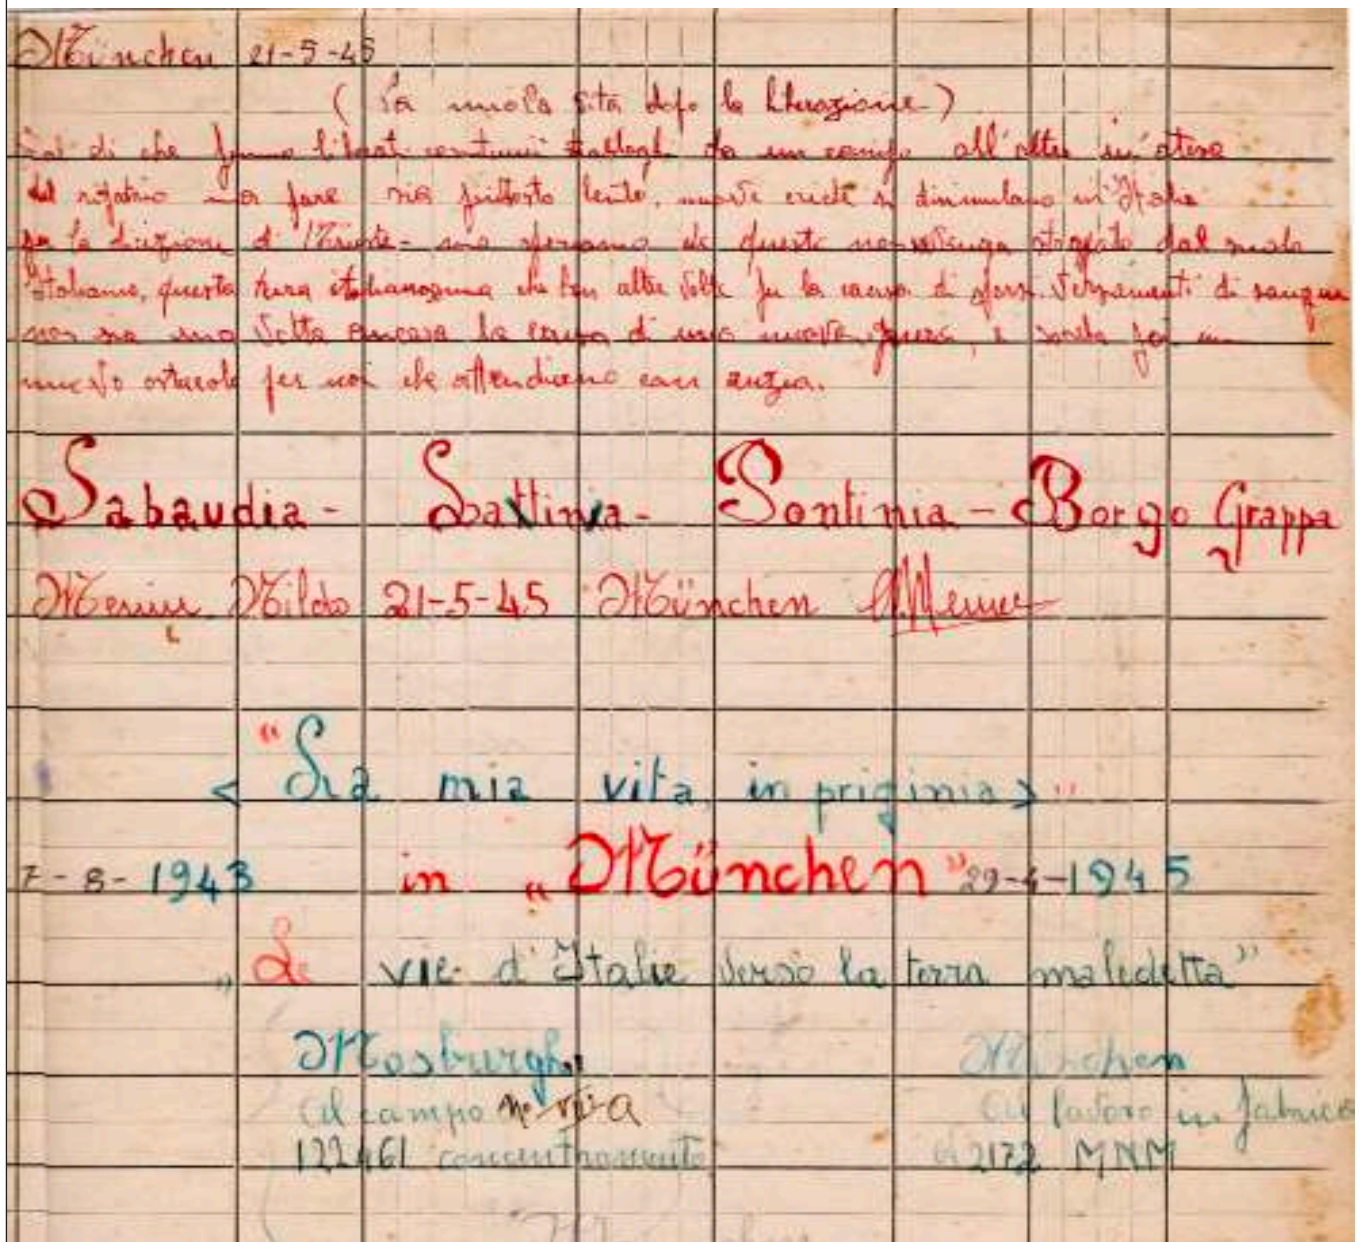 München 21-5-45
( La nuova vita dopo la liberazione )
di che fummo liberati continui da un campo all'altro in attesa
del rimpatrio ma pare sia piuttosto lento, nuove si in Italia
per la di Trieste - ma speriamo che questa non venga dal suolo
Italiano, questa terra italianissima che ben altre volte fu la causa di versamenti di sangue
non sia una volta ancora la causa di una nuova guerra, e poi un
nuovo ostacolo per noi che attendiamo con ansia.
Sabaudia - Lattinia - Pontinia - Borgo Grappa
Mildo 21-5-45 München
< "La mia vita in priginia > "
7-8-1943 in "München" 29-4-1945
" Le vie d'Italie verso la terra maledetta"
Mosburgh München
Al campo Al lavoro in fabrica
122461 concentramento di 2172 MNM